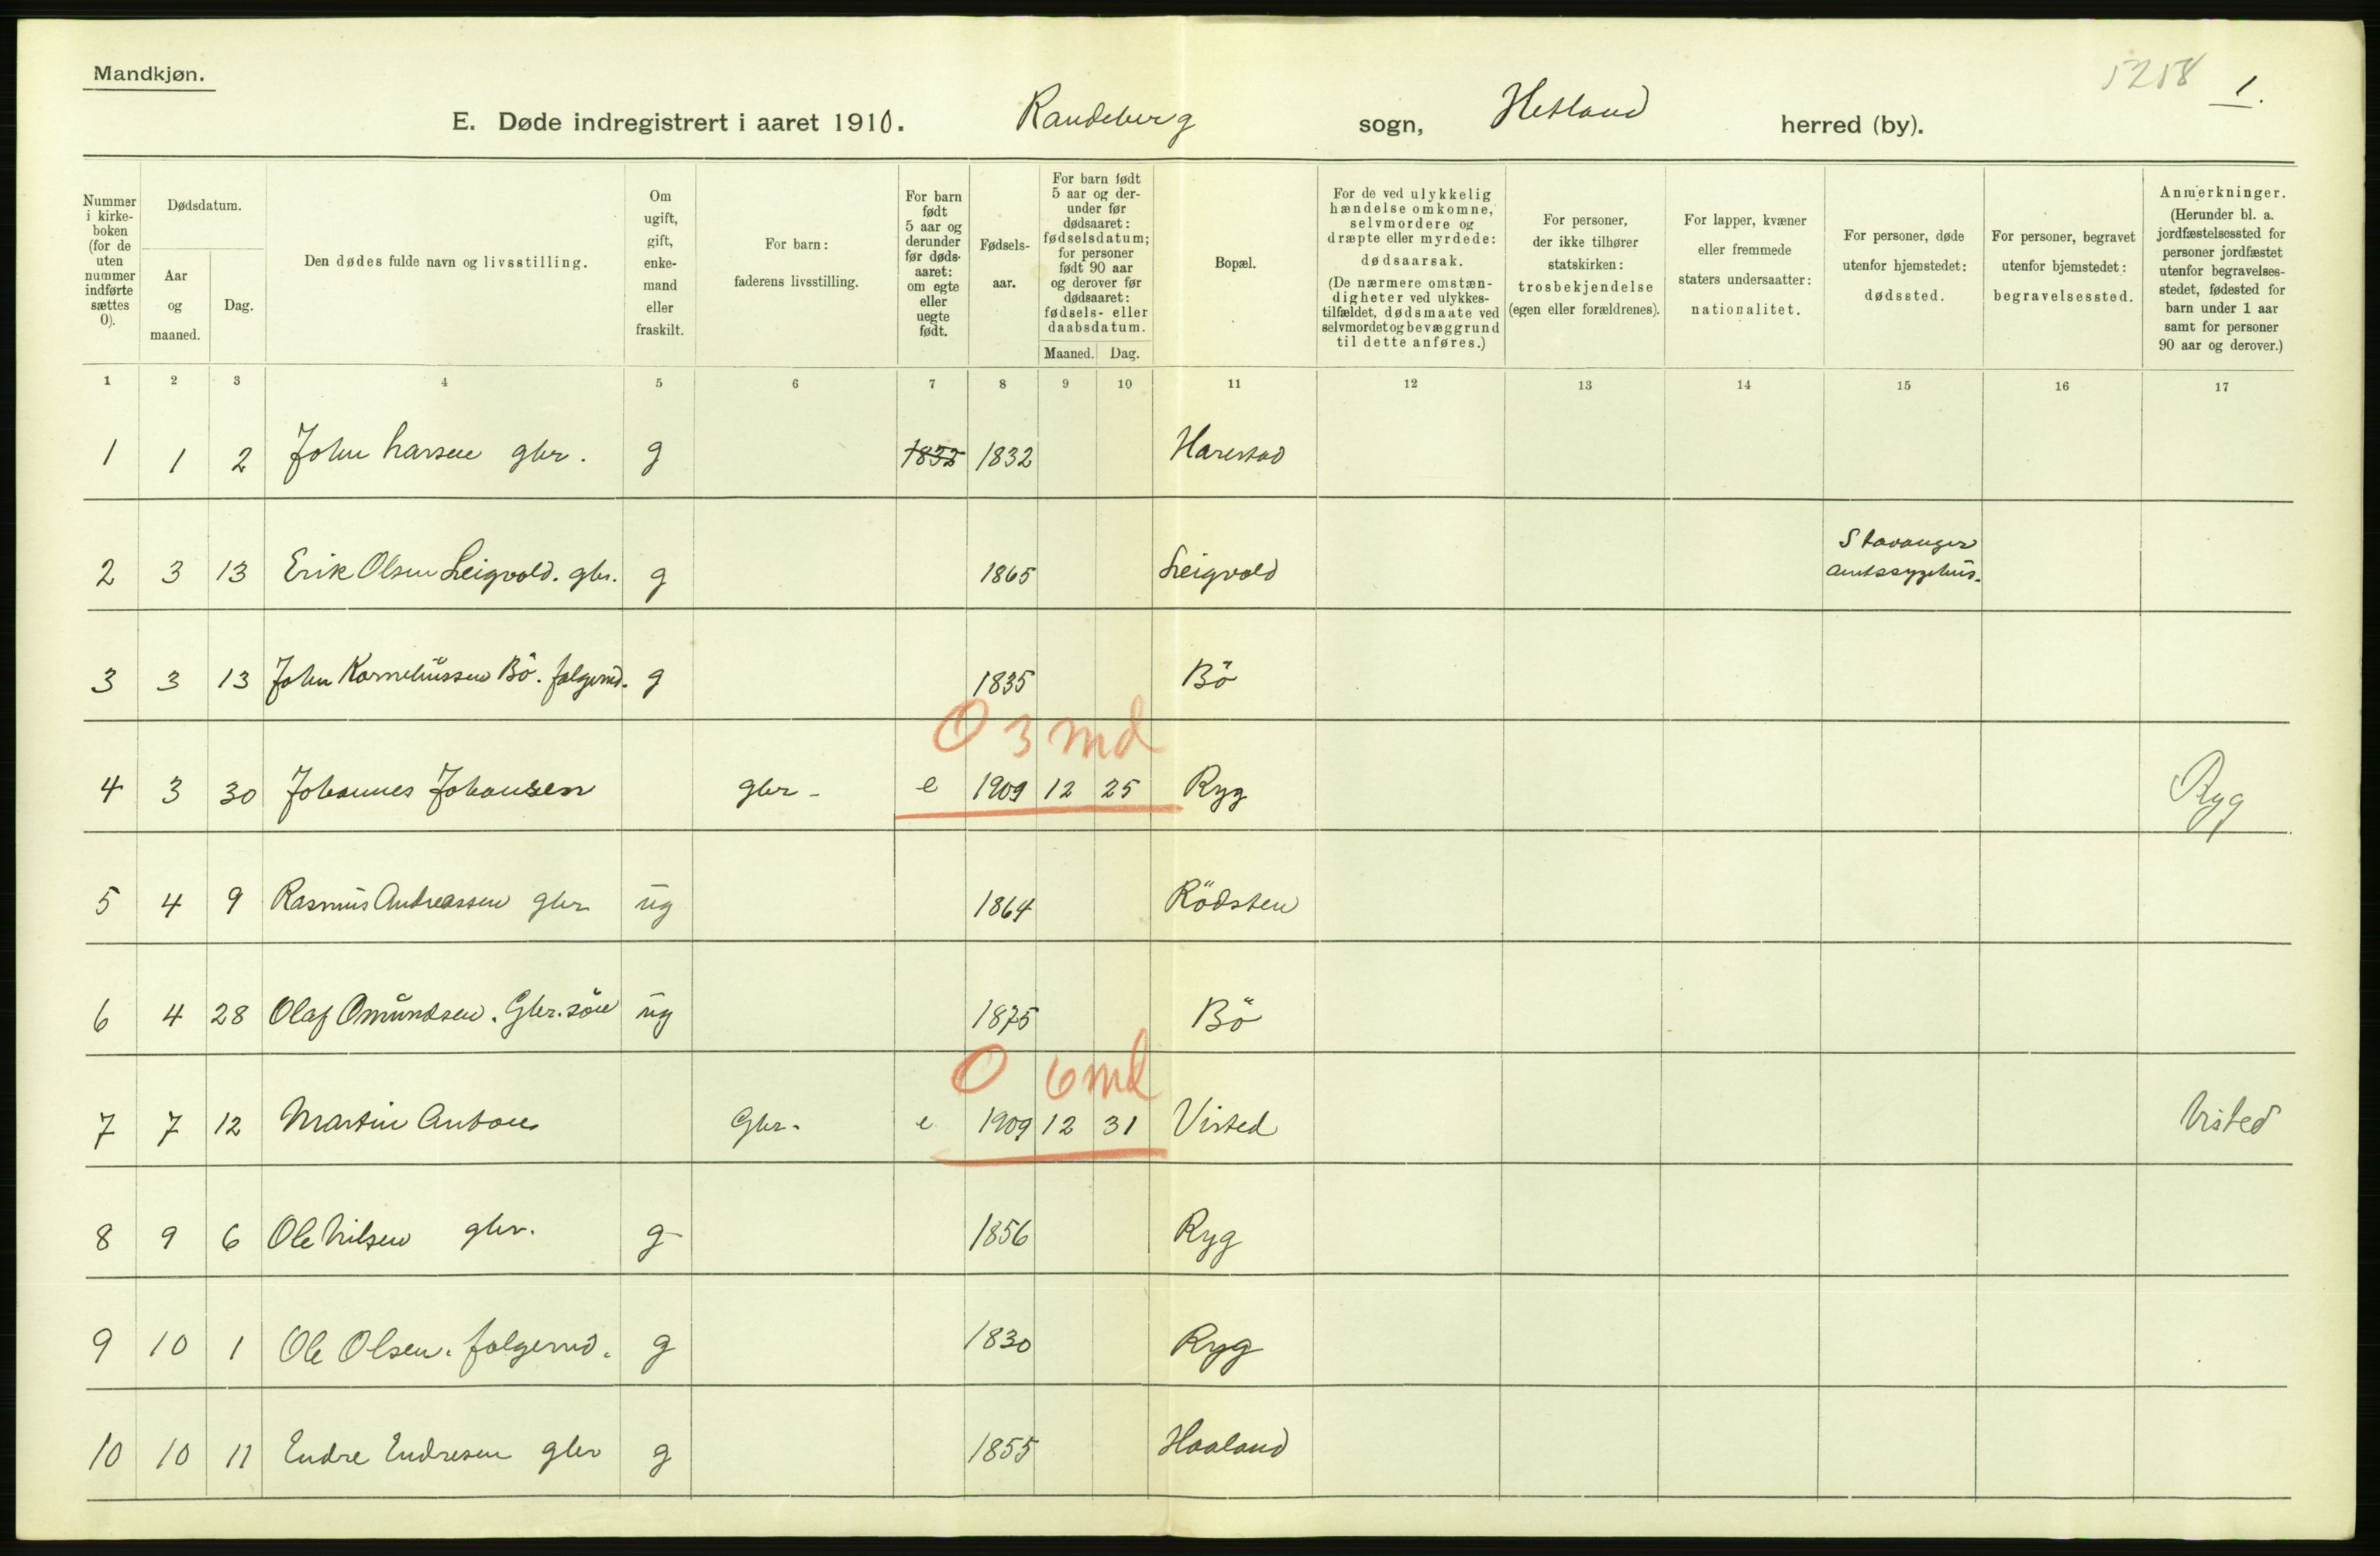 Mandkjøn.
5258
1.
E. Døde indregistrert i aaret 1910. Randeberg sogn, Hetland herred (by).
Nummer i kirke-boken (for de uten nummer indførte sættes 0).
Dødsdatum.
Aar og maaned.
Dag.
Den dødes fulde navn og livsstilling.
Om ugift, gift, enke-mand eller fraskilt.
For barn: faderens livsstilling.
For barn født 5 aar og derunder før døds-aaret: om egte eller uegte født.
Fødsels-aar.
For barn født 5 aar og der-under før dødsaaret: fødselsdatum; for personer født 90 aar og derover før dødsaaret: fødsels- eller daabsdatum.
Maaned. Dag.
Bopæl.
For de ved ulykkelig hændelse omkomne, selvmordere og dræpte eller myrdede: dødsaarsak.
(De nærmere omstæn-digheter ved ulykkes-tilfældet, dødsmaate ved selvmordet og bevæggrund til dette anføres.)
For personer, der ikke tilhører statskirken: trosbekjendelse (egen eller forældrenes).
For lapper, kvæner eller fremmede staters undersaatter: nationalitet.
For personer, døde utenfor hjemstedet: dødssted.
For personer, begravet utenfor hjemstedet: begravelsessted.
Anmerkninger.
(Herunder bl. a. jordfæstelsessted for personer jordfæstet utenfor begravelses-stedet, fødested for barn under 1 aar samt for personer 90 aar og derover.)
1 2 3 4 5 6 7 8 9 10 11 12 13 14 15 16 17
1 1 2 John Larsen gbr. g 1832 1832 Harestad
2 3 13 Erik Olsen Leigvold. gbr. g 1865 Leigvold Stavanger amtssygehus.
3 3 13 John Korneliussen Bö. folgemd. g 1835 Bö
0 3 md
4 3 30 Johannes Johansen gbr - e 1909 12 25 Ryg Ryg
5 4 9 Rasmus Andreassen gbr ug 1864 Rödsten
6 4 28 Olaf Omundsen. Gbr. sön ug 1875 Bö
0 6 md
7 7 12 Martin Anton Gbr - e 1909 12 31 Visted Visted
8 9 6 Ole Nilsen gbr. g 1856 Ryg
9 10 1 Ole Olsen. folgemd. g 1830 Ryg
10 10 11 Endre Endresen gbr g 1855 Haaland